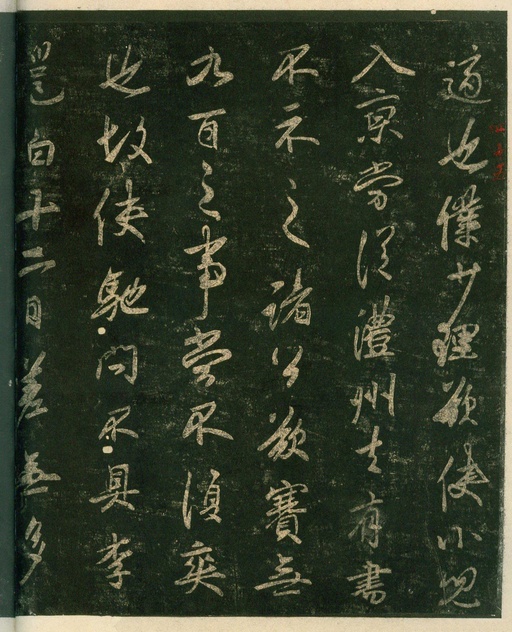 適也僕少理欲使小兒
入京當從澧州去有書
不示之諸公欲賽無
九百之事當不須奕
也故使馳問不具李
邕白十二月差無多